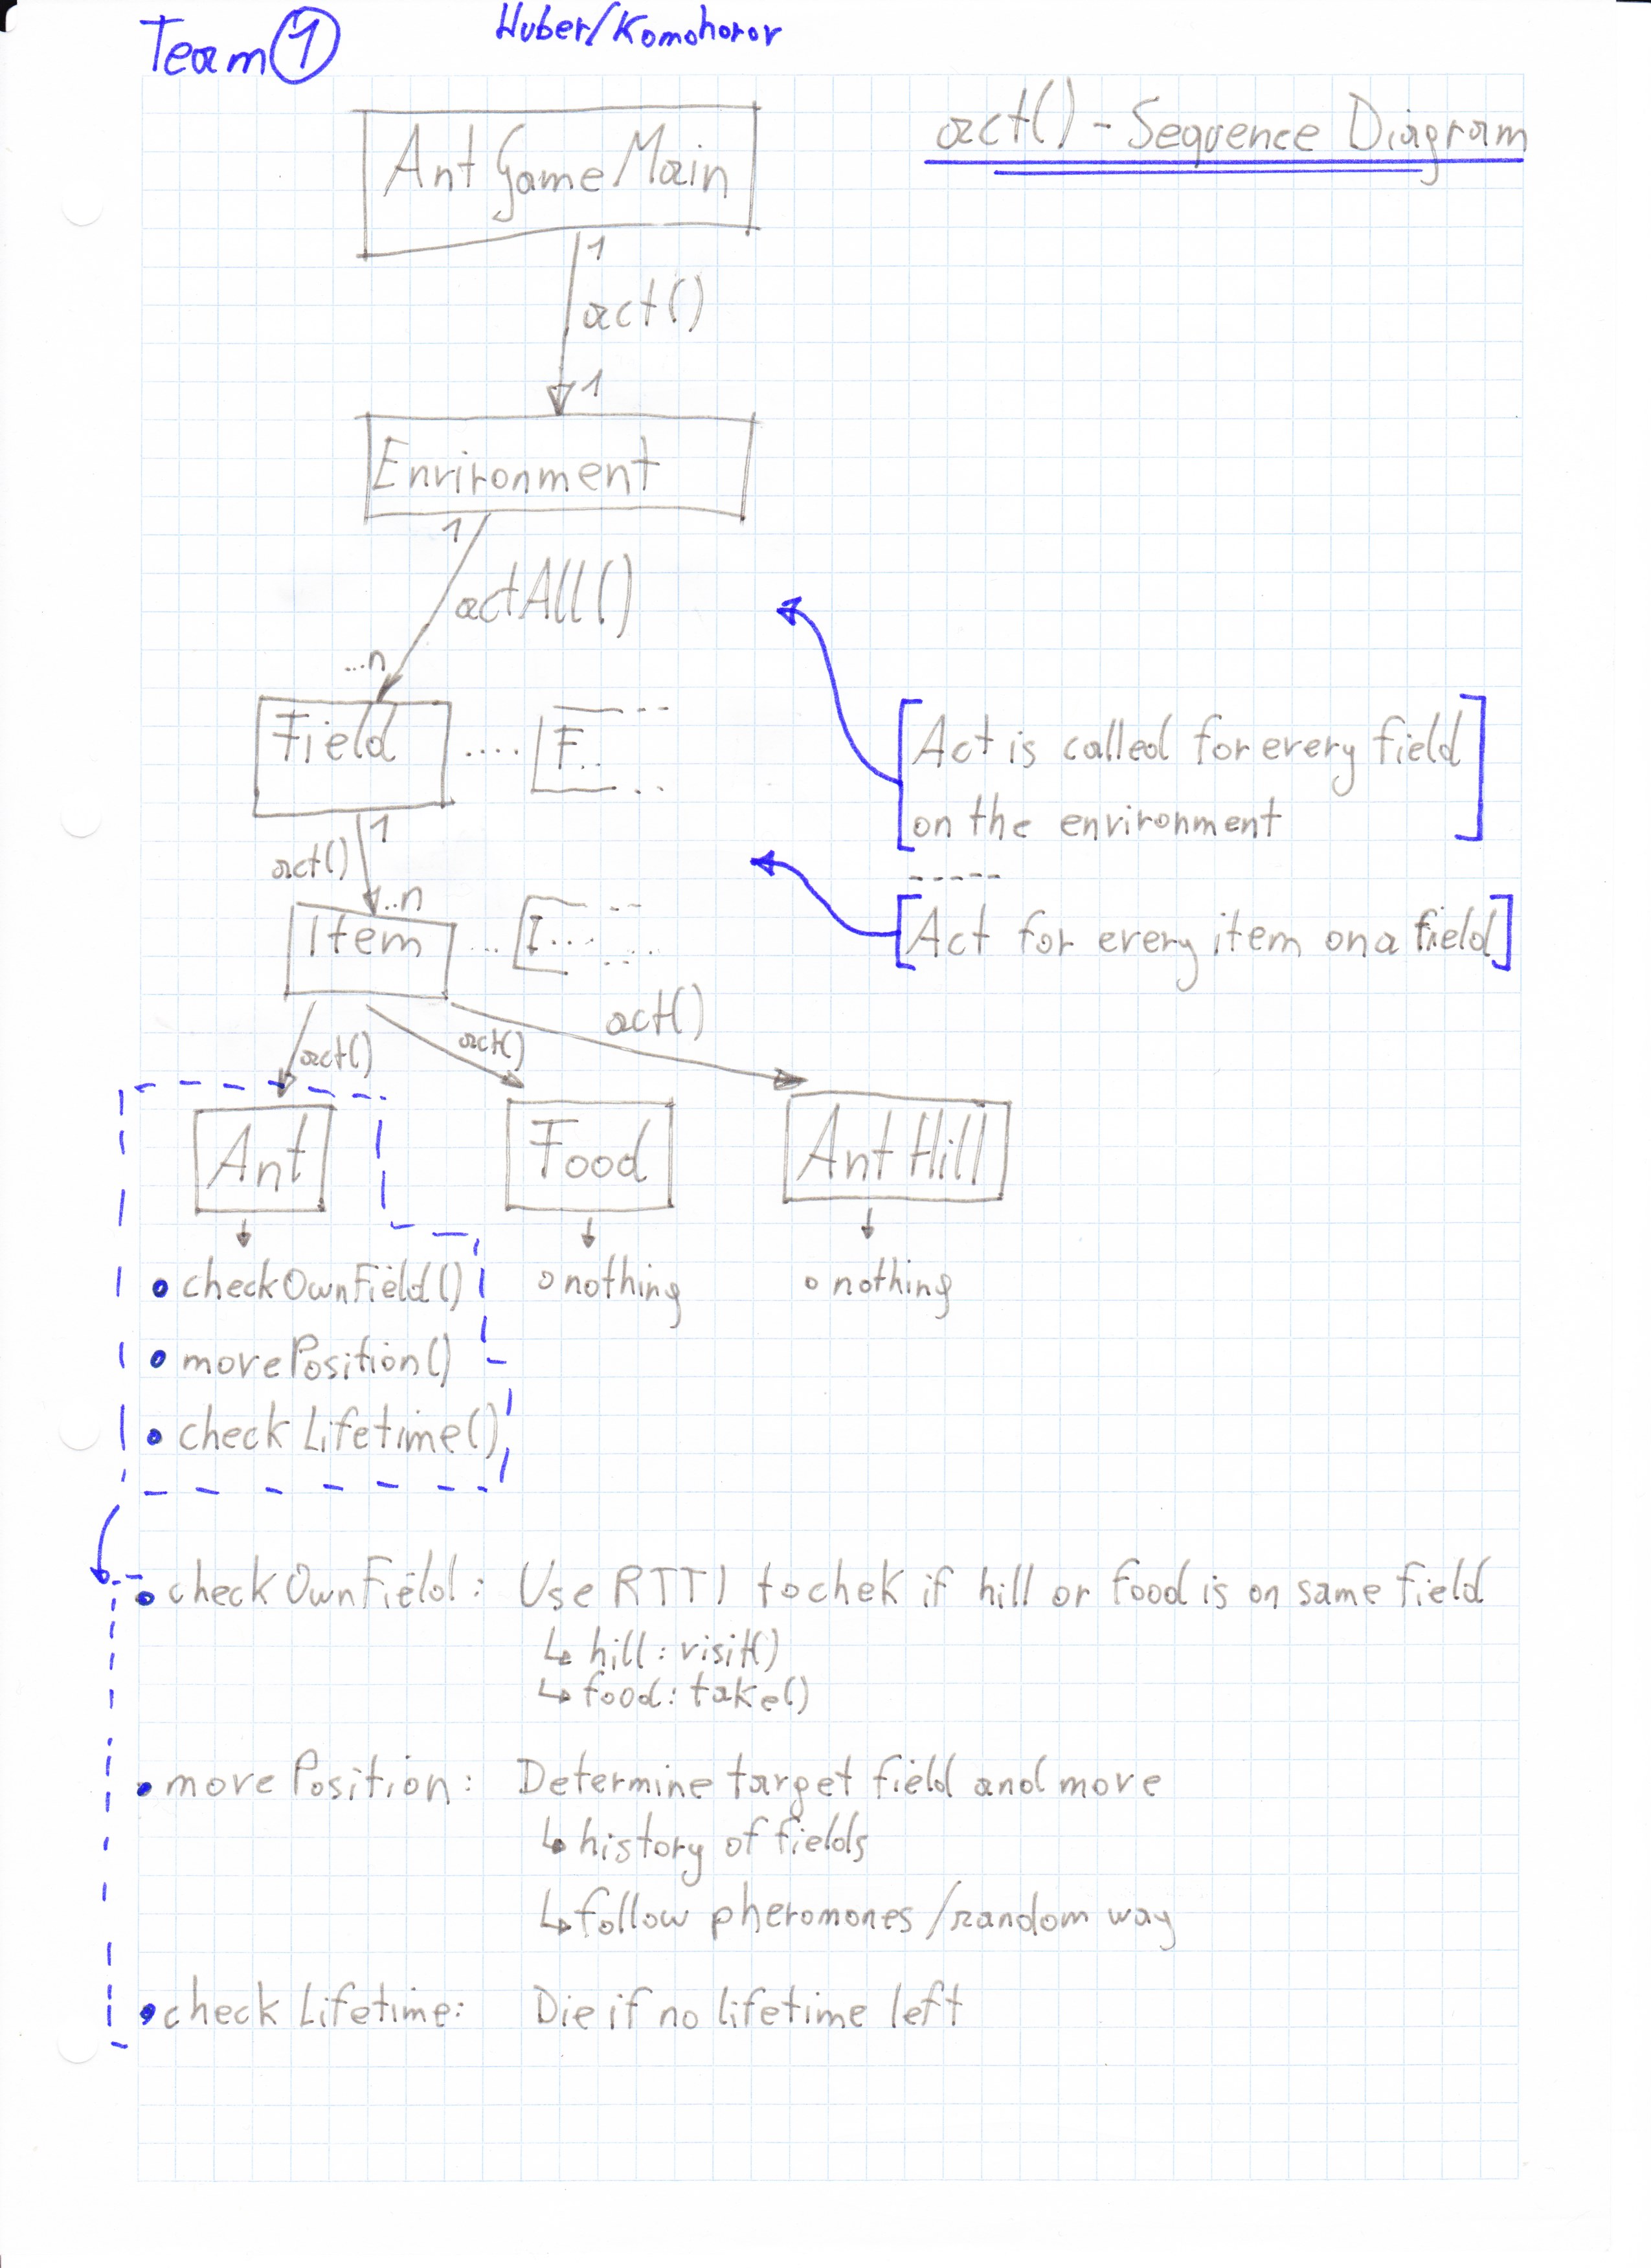 Team 1
Huber/Komohorov
act() - Sequence Diagram
AntGameMain
1
act()
1
Environment
1
actAll()
...n
Field .... F..
1
act()
..n
Item ... I...
[Act is called for every field
on the environment]
-----
[Act for every item on a field]
act() act() act()
Ant Food AntHill
• checkOwnField() o nothing o nothing
• movePosition()
• checkLifetime()
• checkOwnField: Use RTTI to chek if hill or food is on same field
↳ hill: visit()
↳ food: take()
• movePosition: Determine target field and move
↳ history of fields
↳ follow pheromones/random way
• checkLifetime: Die if no lifetime left